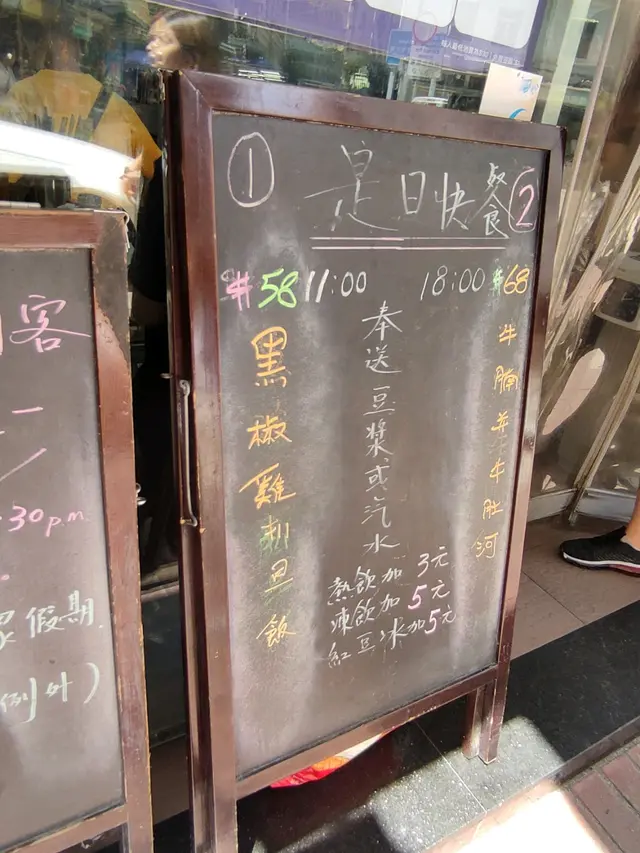 ① 是日快餐 ②
$58 11:00 18:00 $68
黑椒雞旦飯
奉送豆漿或汽水
牛腩并牛肚河
熱飲加 3元
凍飲加 5元
紅豆冰加5元
客
:30p.m.
眾假期
例外)